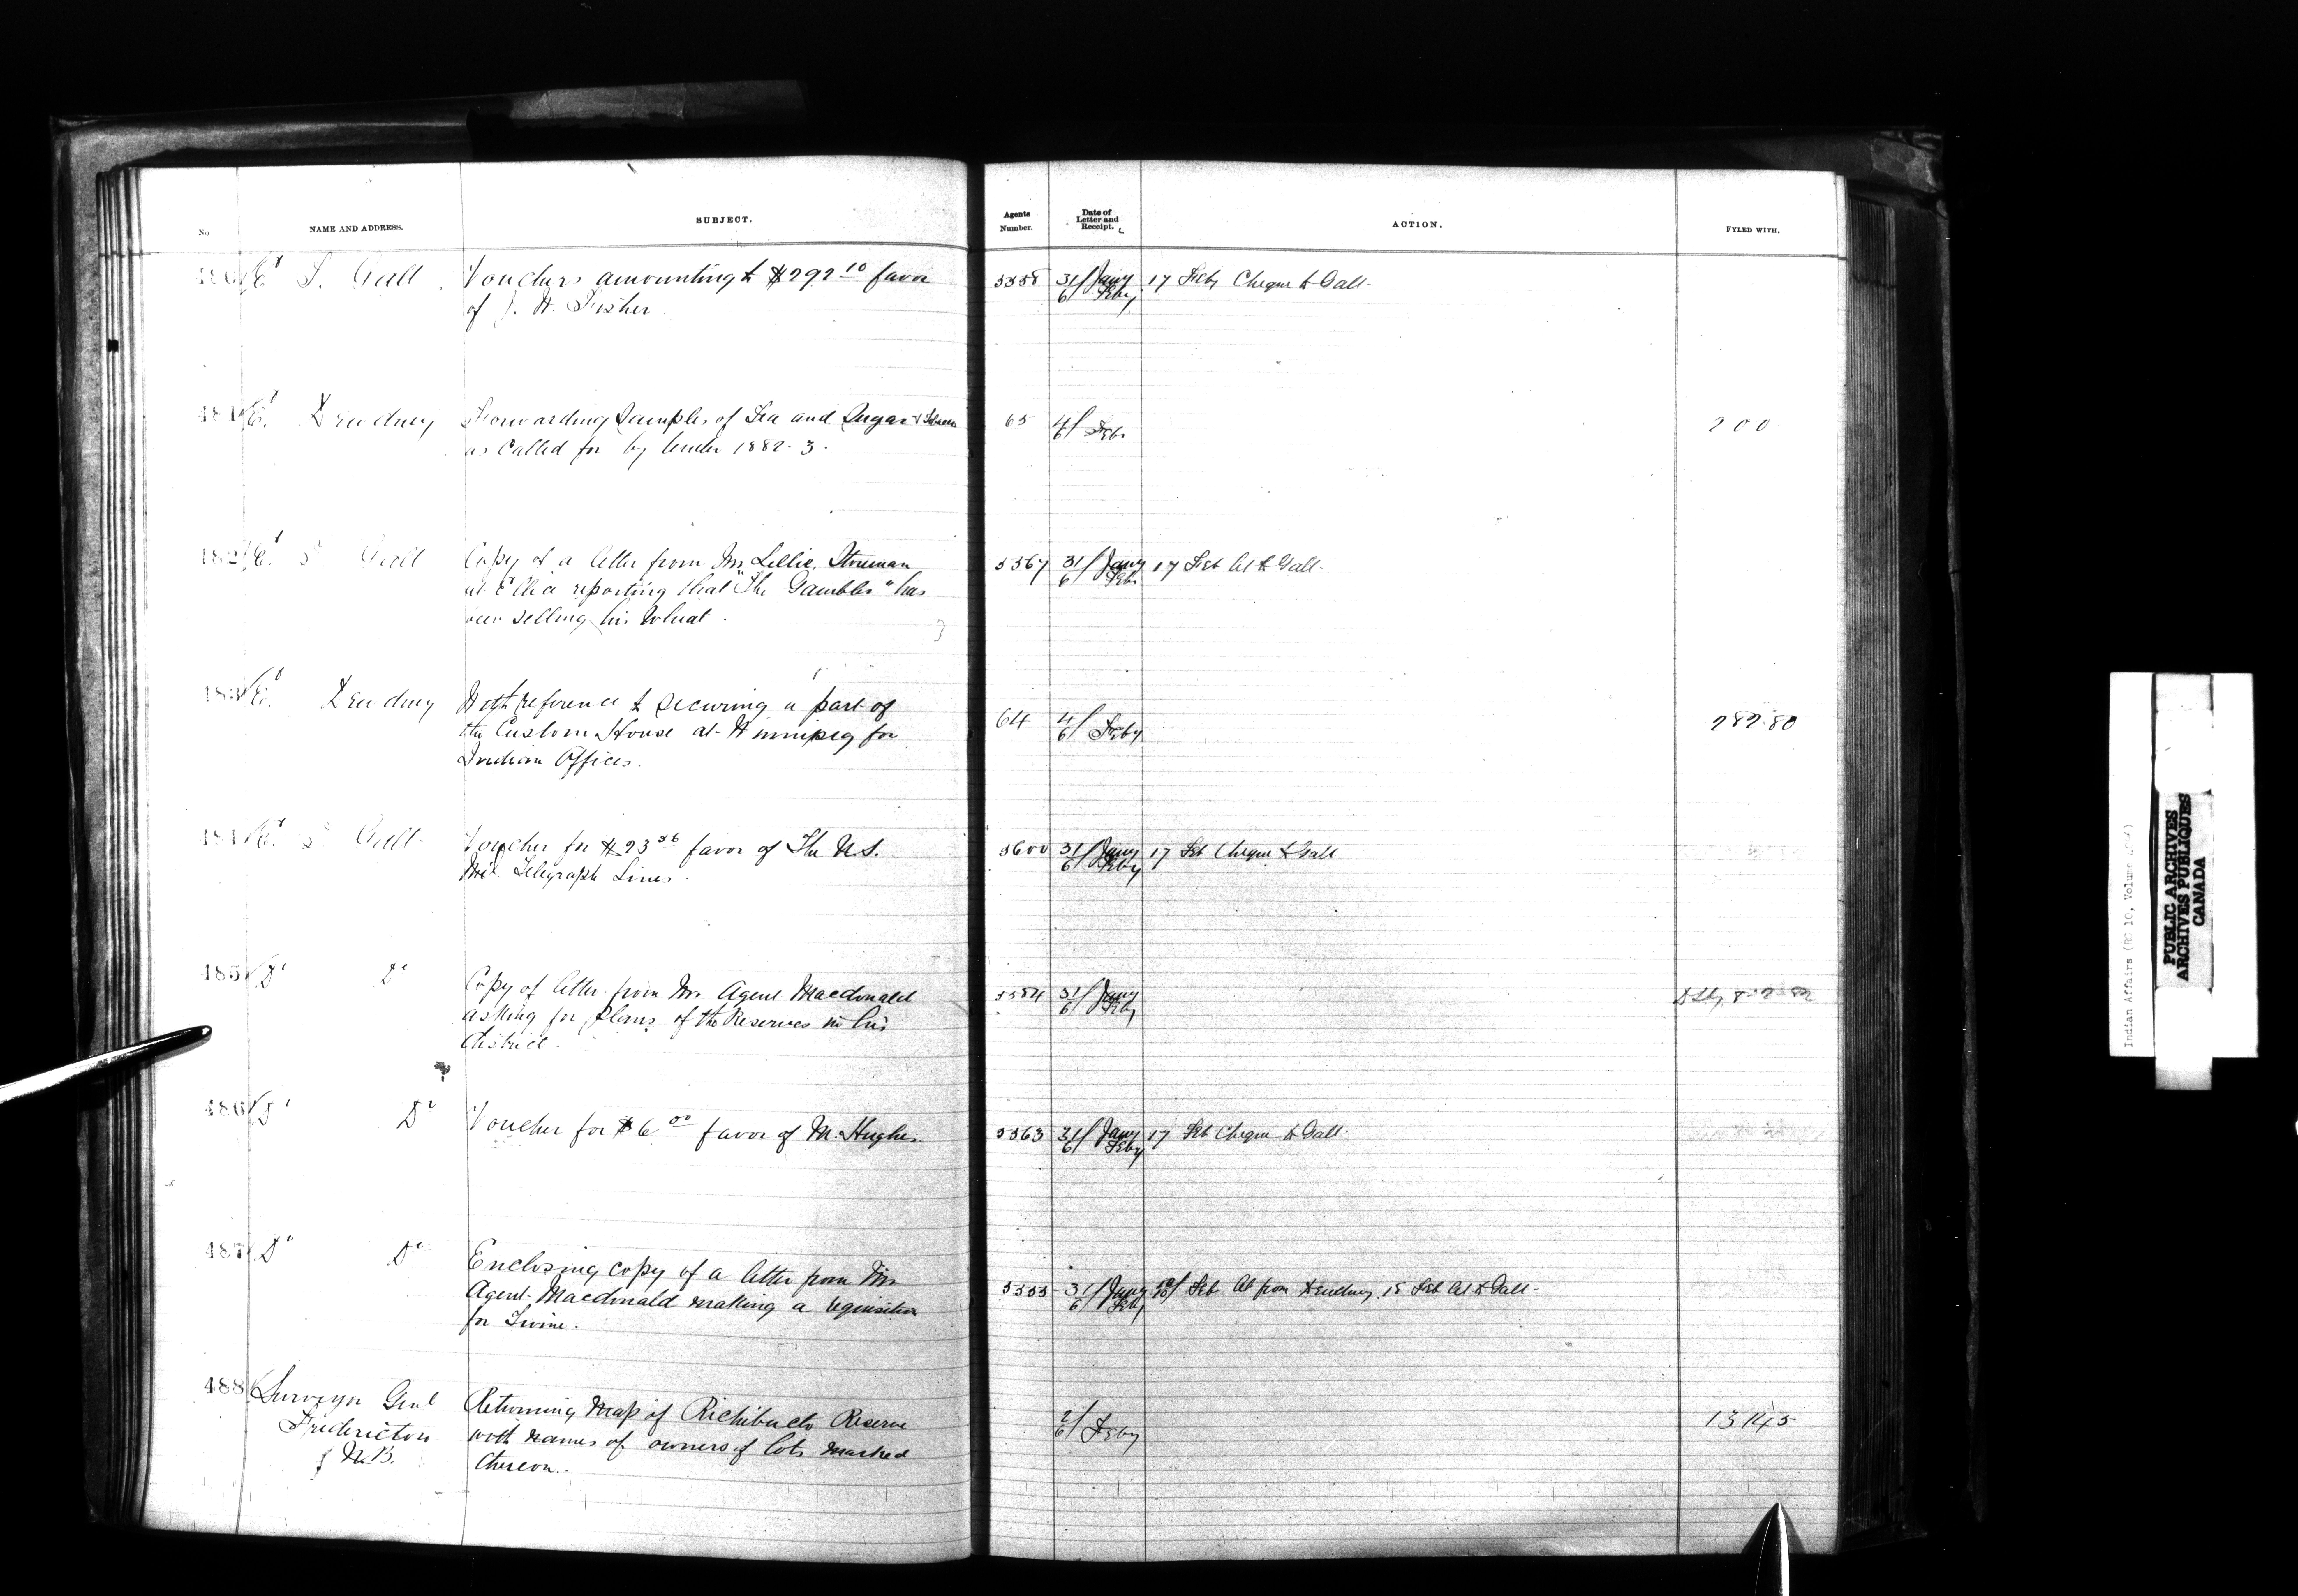 No
NAME AND ADDRESS.
SUBJECT.
Agents Number.
Date of Letter and Receipt.
ACTION.
FYLED WITH.
T. Galt
Vouchers amounting to $292.10 favor
of J. H. Fisher
5558
31/ Jany
6/ Feby
17 Feby Cheque to Galt
481 Dewdney
Forwarding Samples of Tea and Sugar &
as called for by tender 1882-3.
65
4/
6/ Feb
200
482 Galt
Copy of a letter from Mr Lellie,
at reporting that "The Gambler" has
been selling his wheat.
5567
31/ Jany
6/ Feb
17 Feb al to Galt
483 Dewdney
With reference to securing a part of
the Custom House at Winnipeg for
Indian Offices.
64
4/
6/ Feby
282.80
484 Galt
Voucher for $23.56 favor of The U.S.
Mil. Telegraph Lines.
5600
31/ Jany
6/ Feby
17 Feb Cheque to Galt
485 Do Do
Copy of letter from Mr Agent Macdonald
asking for plans of the Reserves in his
district.
5584
31/ Jany
6/ Feby
8-2-82
486 Do Do
Voucher for $6.00 favor of M. Hughes.
5563
31/ Jany
6/ Feby
17 Feb Cheque to Galt
487 Do Do
Enclosing copy of a letter from Mr
Agent Macdonald making a requisition
for Twine.
5553
31/ Jany
6/ Feby
Feb al from Dewdney. 15 Feb al to Galt
488 Surveyor Genl
Fredericton
N.B.
Returning map of Richibucto Reserve
with names of owners of lots marked
thereon.
2/
6/ Feby
13145
Indian Affairs (RG 10, Volume
PUBLIC ARCHIVES
ARCHIVES PUBLIQUES
CANADA